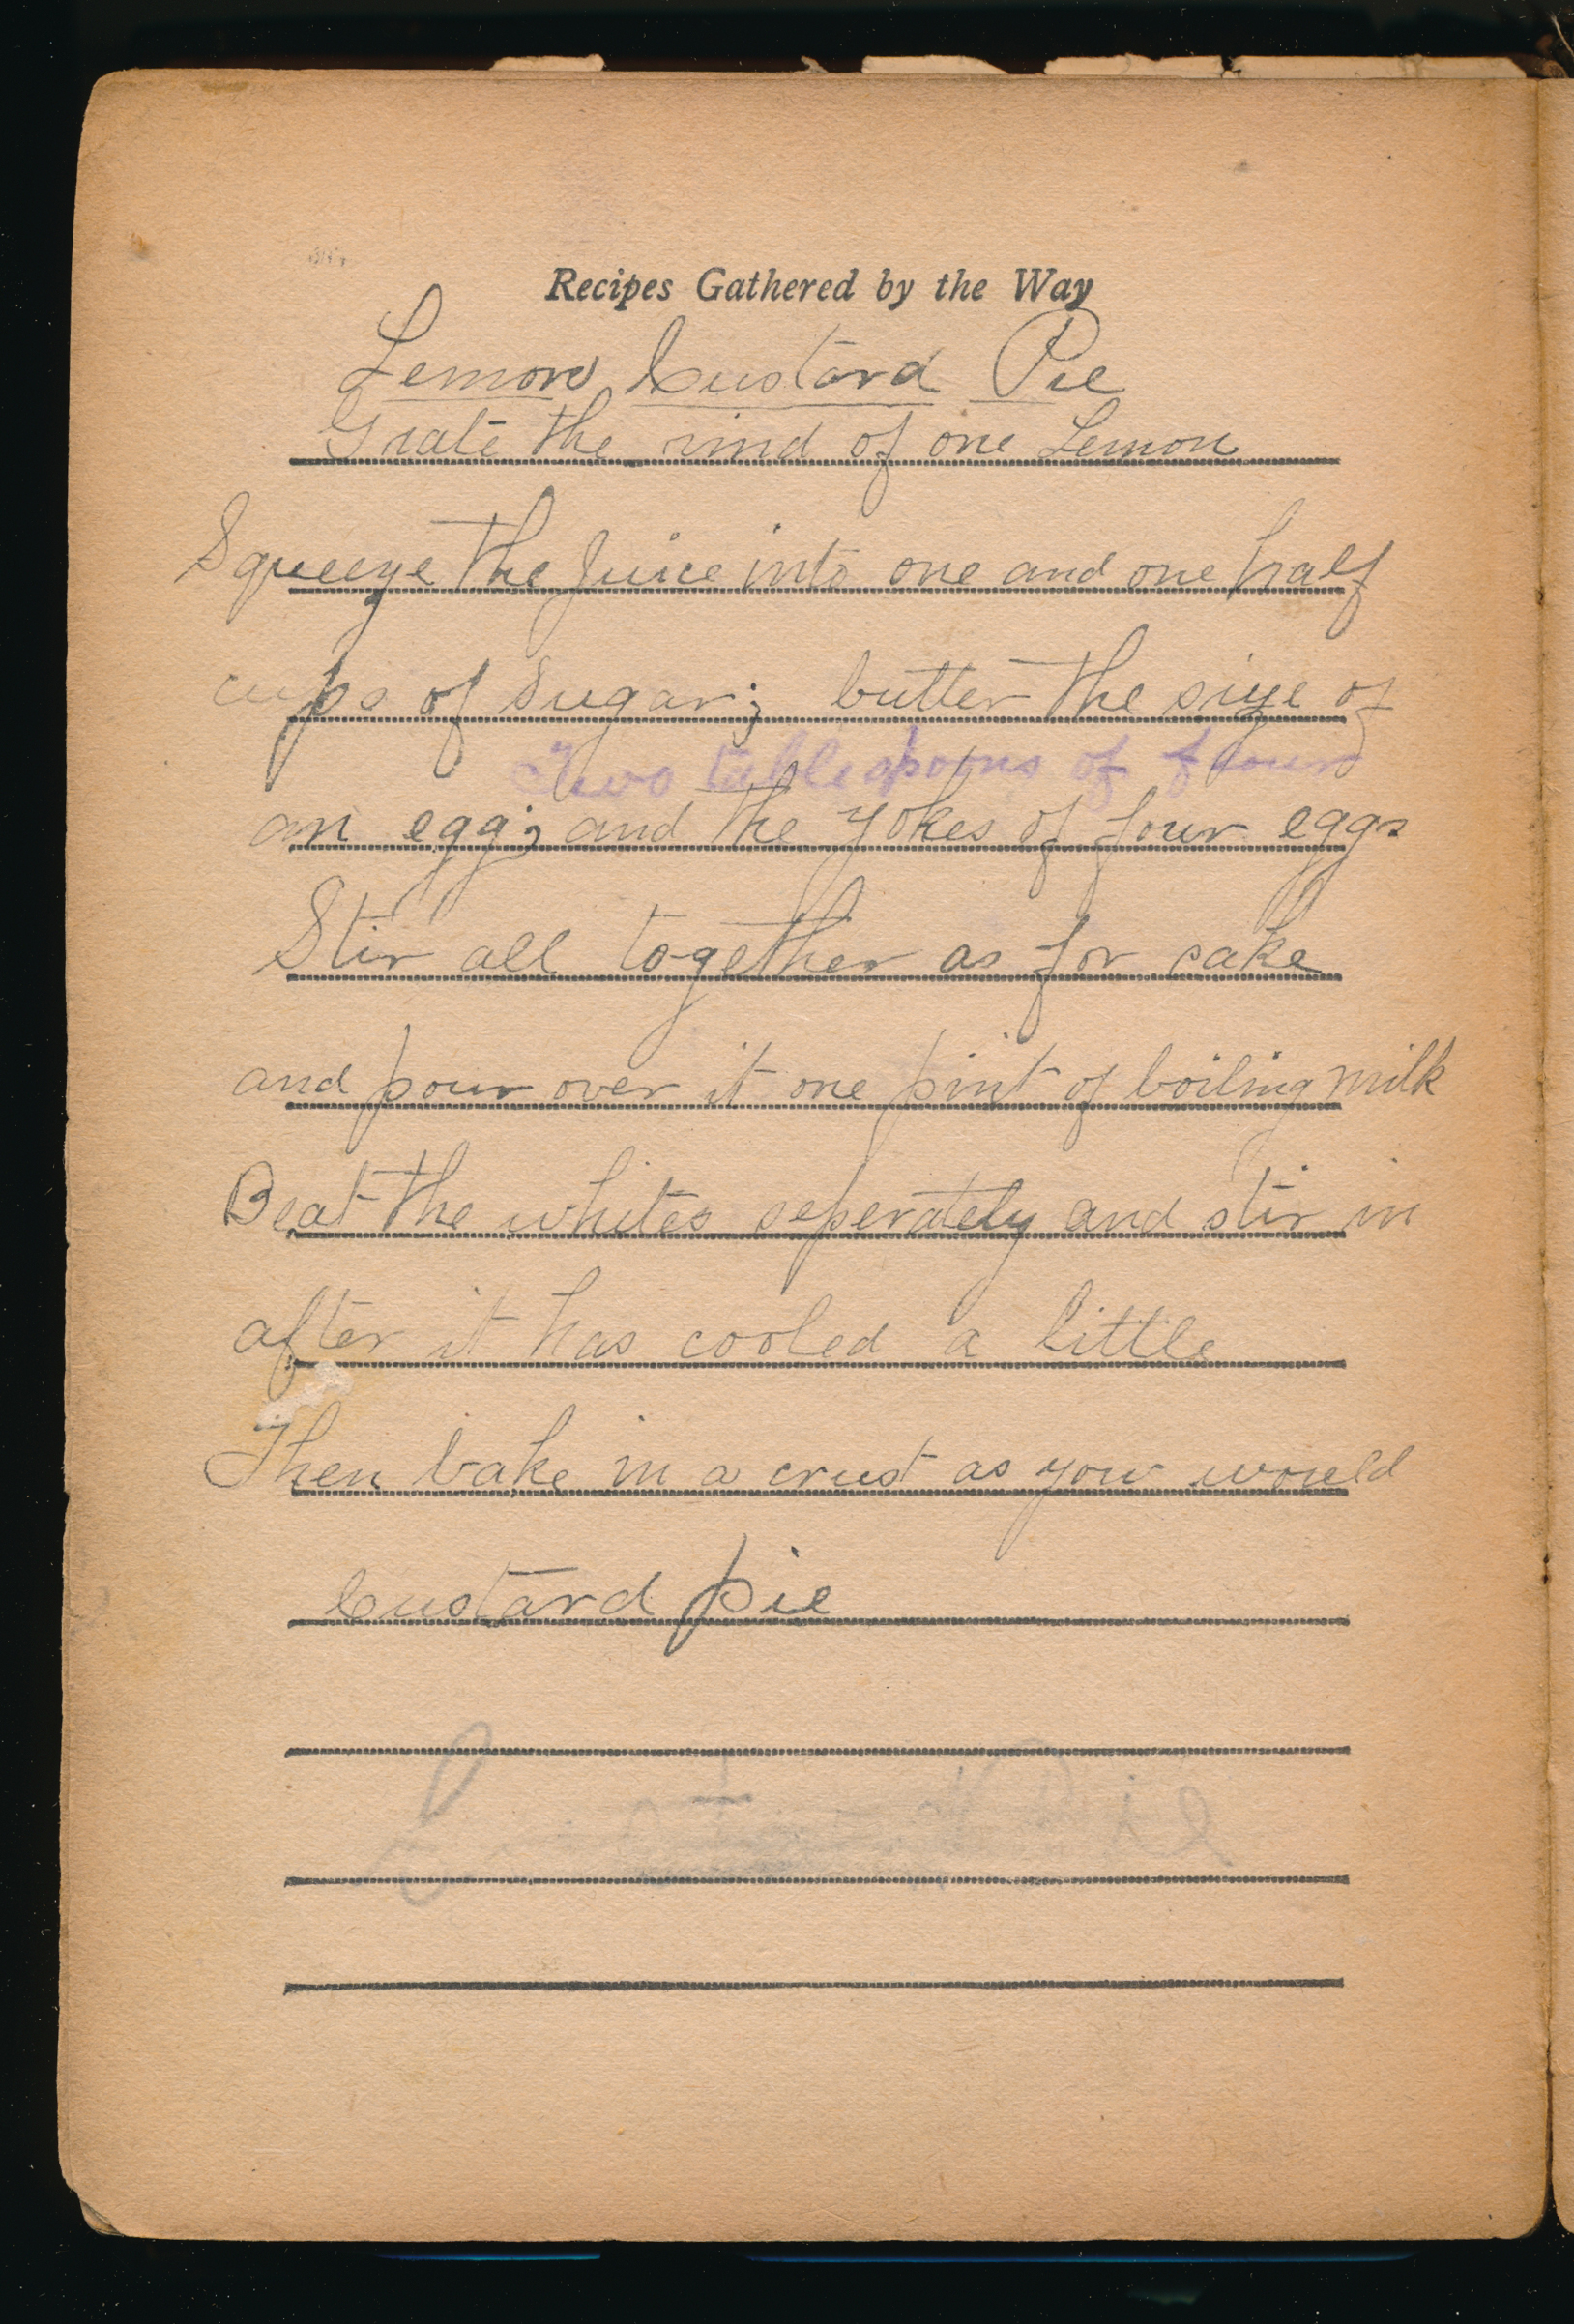 Recipes Gathered by the Way
Lemon Custard Pie
Grate the rind of one Lemon
Squeeze the Juice into one and one half
cups of Sugar; butter the size of
Two tablespoons of flour
an egg; and the yokes of four eggs
Stir all together as for cake
and pour over it one pint of boiling milk
Beat the whites seperately and stir in
after it has cooled a little
Then bake in a crust as you would
Custard pie